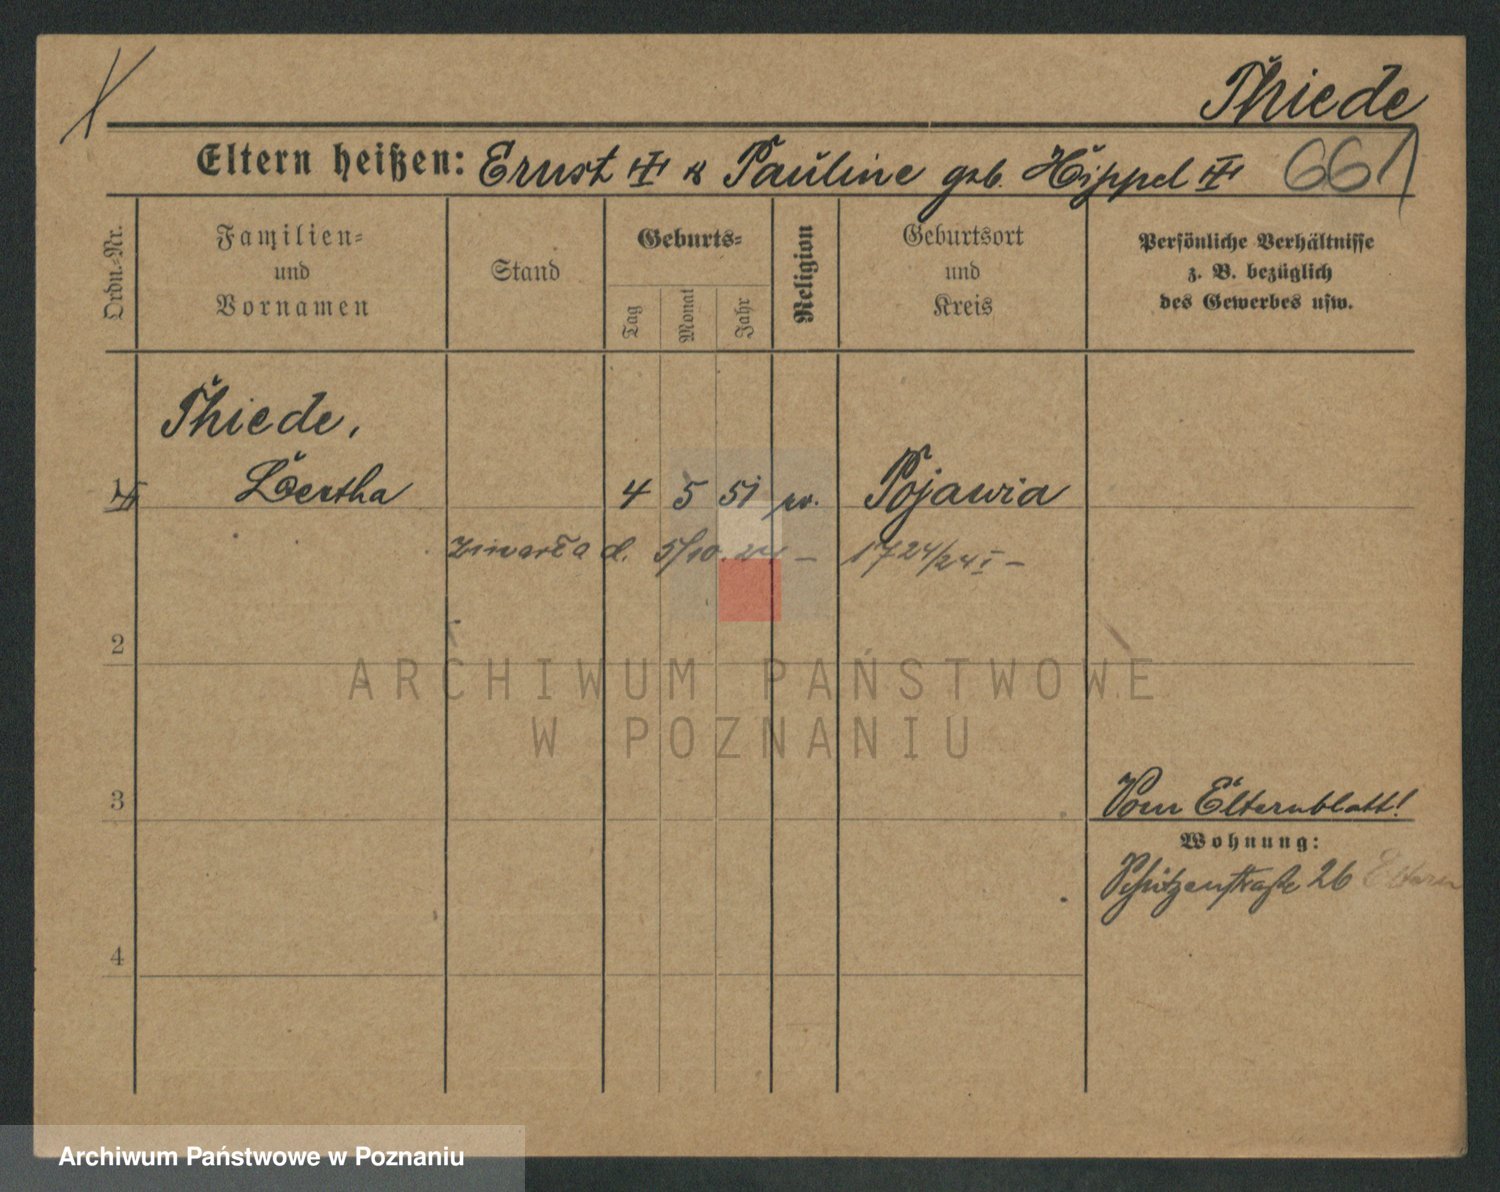 Thiede
Eltern heißen: Ernst & Pauline geb. Hippel 661
Ordn.-Nr.
Familien-
und
Vornamen
Stand
Geburts-
Tag
Monat
Jahr
Religion
Geburtsort
und
Kreis
Persönliche Verhältnisse
z. B. bezüglich
des Gewerbes usw.
Thiede,
1 Bertha 4 5 51 ev.
zmarła d. 5/10. 24 – 1724/24 I –
2
ARCHIWUM PAŃSTWOWE
W POZNANIU
3
Vom Elternblatt!
Wohnung:
Schützenstraße 26 Eltern
4
Archiwum Państwowe w Poznaniu